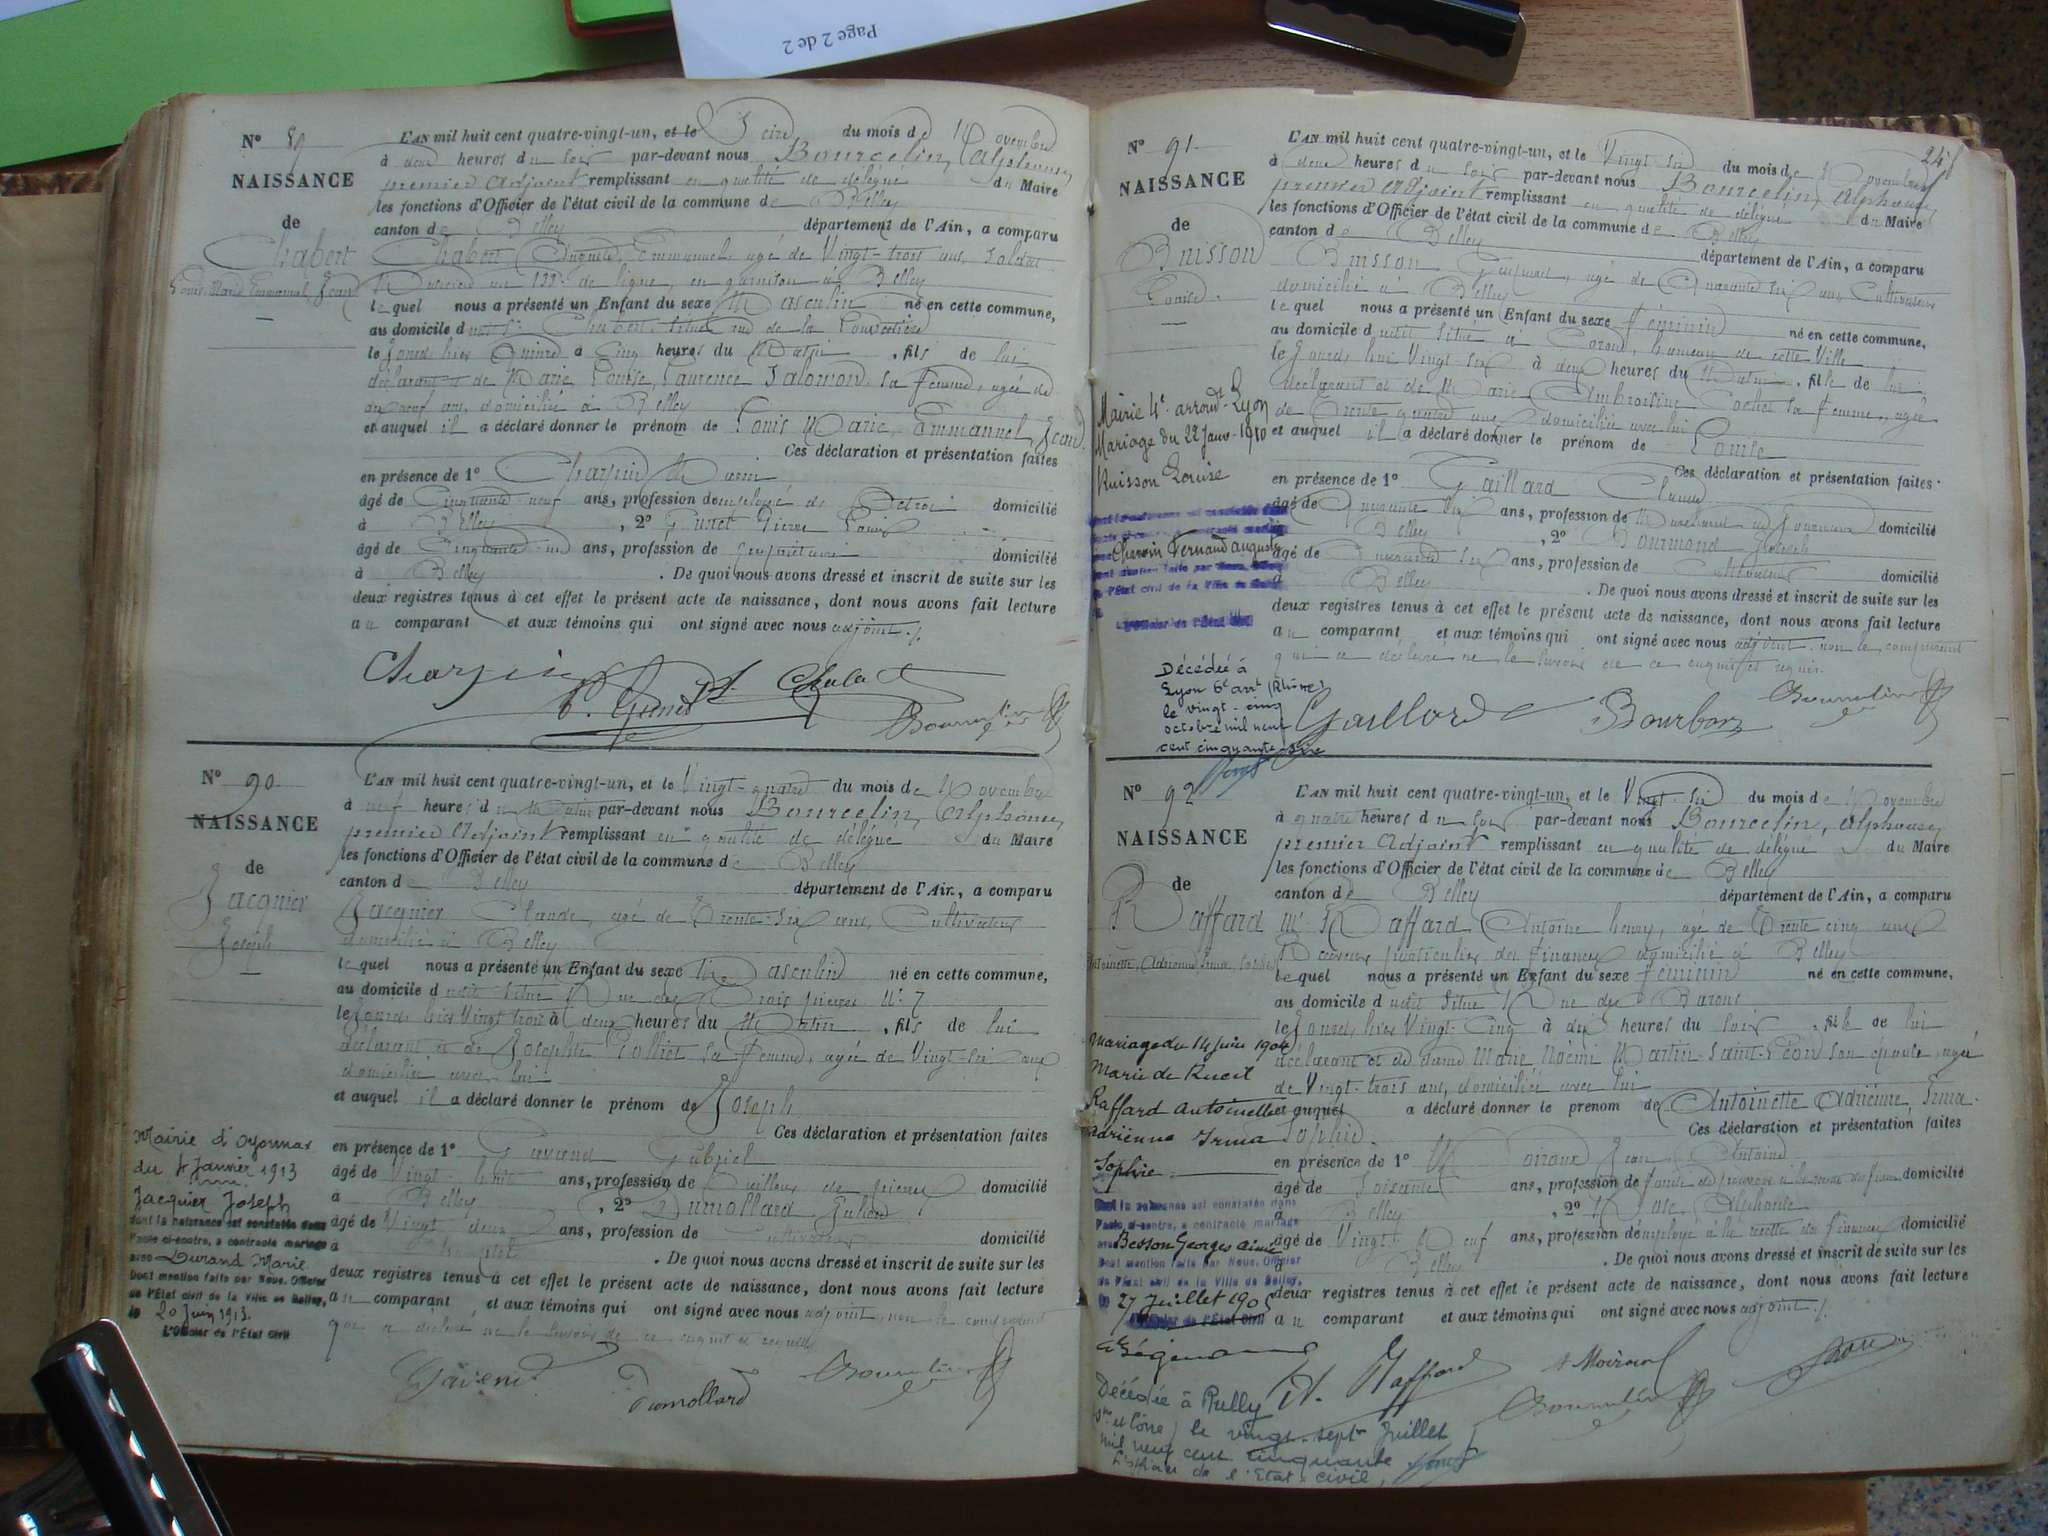 Page 2 de 2
N° 89
NAISSANCE
de
Chabert
Louis Marie Emmanuel Jean
L'AN mil huit cent quatre-vingt-un, et le Seize du mois de Novembre
à deux heures du soir par-devant nous Bourcelin, Alphonse,
premier adjoint remplissant en qualité de délégué du Maire
les fonctions d'Officier de l'état civil de la commune de Belley
canton de Belley département de l'Ain, a comparu
Chabert Auguste Emmanuel, agé de Vingt-trois ans, Soldat
Musicien au 133e de ligne, en garnison à Belley
lequel nous a présenté un Enfant du sexe Masculin né en cette commune,
au domicile dudit Sr Chabert, situé rue de la
le Jour d'hier Quinze à Cinq heures du Matin, fils de lui
déclarant et de Marie Louise Laurence Salomon, sa femme, agée de
ans, domiciliée à Belley
et auquel il a déclaré donner le prénom de Louis Marie, Emmanuel, Jean.
Ces déclaration et présentation faites
en présence de 1° Charpin
âgé de Cinquante neuf ans, profession d'employé de l'Octroi domicilié
à Belley, 2° Pierre Louis
âgé de Cinquante un ans, profession de propriétaire domicilié
à Belley. De quoi nous avons dressé et inscrit de suite sur les
deux registres tenus à cet effet le présent acte de naissance, dont nous avons fait lecture
au comparant et aux témoins qui ont signé avec nous adjoint ./.
Charpin
N° 90
NAISSANCE
de
Jacquier
Joseph
L'AN mil huit cent quatre-vingt-un, et le Vingt-quatre du mois de Novembre
à neuf heures du Matin par-devant nous Bourcelin, Alphonse,
premier Adjoint remplissant en qualité de délégué du Maire
les fonctions d'Officier de l'état civil de la commune de Belley
canton de Belley département de l'Ain, a comparu
Jacquier Claude, agé de Trente-six ans, Cultivateur
domicilié à Belley
lequel nous a présenté un Enfant du sexe Masculin né en cette commune,
au domicile dudit situé Rue des Trois pierres N° 7
le Jour d'hier Vingt trois à deux heures du Matin, fils de lui
déclarant et de Josephte sa femme, agée de Vingt-six ans
domiciliée avec lui
et auquel il a déclaré donner le prénom de Joseph
Ces déclaration et présentation faites
en présence de 1° Gavend Gabriel
âgé de Vingt-huit ans, profession de tailleur de pierres domicilié
à Belley, 2° Dumollard Julien
âgé de Vingt deux ans, profession de Cultivateur domicilié
à. De quoi nous avons dressé et inscrit de suite sur les
deux registres tenus à cet effet le présent acte de naissance, dont nous avons fait lecture
au comparant, et aux témoins qui ont signé avec nous adjoint, non le comparant
qui a déclaré ne le savoir de ce enquis et requis
Mairie d'Oyonnax
du 4 Janvier 1913
Jacquier Joseph
dont la naissance est constatée dans
l'acte ci-contre, a contracté mariage
avec Durand Marie
Dont mention faite par Nous, Officier
de l'État civil de la Ville de Belley,
le 20 Juin 1913.
L'Officier de l'État Civil
Gavend
Dumollard
Bourcelin
N° 91
NAISSANCE
de
Buisson
Louise.
L'AN mil huit cent quatre-vingt-un, et le Vingt-six du mois de Novembre
à deux heures du soir par-devant nous Bourcelin, Alphonse,
premier Adjoint remplissant en qualité de délégué du Maire
les fonctions d'Officier de l'état civil de la commune de Belley
canton de Belley département de l'Ain, a comparu
Buisson, agé de Quarante six ans, Cultivateur
domicilié à Belley
lequel nous a présenté un Enfant du sexe Féminin né en cette commune,
au domicile dudit situé à Coron, hameau de cette Ville
le Jourd'hui Vingt six à deux heures du Matin, fille de lui
déclarant et de Marie Ambroisine Cochet sa femme, agée
de Trente quatre ans, domiciliée avec lui
et auquel il a déclaré donner le prénom de Louise
Ces déclaration et présentation faites
en présence de 1° Gaillard Claude
âgé de Quarante six ans, profession de domicilié
à Belley, 2° Joseph
âgé de Cinquante six ans, profession de domicilié
à Belley. De quoi nous avons dressé et inscrit de suite sur les
deux registres tenus à cet effet le présent acte de naissance, dont nous avons fait lecture
au comparant et aux témoins qui ont signé avec nous adjoint, non le comparant
qui a déclaré ne le savoir de ce enquis et requis.
Mairie 4e arrondt Lyon
Mariage du 22 Janv. 1910
Buisson Louise
Fernand Auguste
Décédée à
Lyon 6e arrt (Rhône)
le vingt-cinq
octobre mil neuf
cent cinquante-six
Gaillard Bourbon Bourcelin
N° 92
NAISSANCE
de
Raffard
Antoinette, Adrienne, Irma, Sophie
L'AN mil huit cent quatre-vingt-un, et le Vingt-six du mois de Novembre
à quatre heures du soir par-devant nous Bourcelin, Alphonse,
premier Adjoint remplissant en qualité de délégué du Maire
les fonctions d'Officier de l'état civil de la commune de Belley
canton de Belley département de l'Ain, a comparu
Mr Raffard Antoine henry, agé de Trente cinq ans
Receveur particulier des finances domicilié à Belley
lequel nous a présenté un Enfant du sexe Féminin né en cette commune,
au domicile dudit situé Rue des Barons
le Jour d'hier Vingt-Cinq à dix heures du soir, fille de lui
déclarant et de dame Marie Noémi Martin-Saint-Léon son épouse, agée
de Vingt-trois ans, domiciliée avec lui
et auquel a déclaré donner le prénom de Antoinette Adrienne, Irma.
Sophie.
Ces déclaration et présentation faites
en présence de 1° Moiroud Jean Antoine
âgé de Soixante ans, profession de fondé de pouvoirs à la recette des finances domicilié
à Belley, 2° Alphonse
âgé de Vingt-Neuf ans, profession d'employé à la recette des finances domicilié
à Belley. De quoi nous avons dressé et inscrit de suite sur les
deux registres tenus à cet effet le présent acte de naissance, dont nous avons fait lecture
au comparant et aux témoins qui ont signé avec nous adjoint ./.
Mariage du 14 Juin 190
Mairie de Rueil
Raffard Antoinette
Adrienne Irma
Sophie
dont la naissance est constatée dans
l'acte ci-contre, a contracté mariage
avec Besson Georges Aimé
Dont mention faite par Nous, Officier
de l'État civil de la Ville de Belley,
le 27 Juillet 1905
l'Officier de l'État Civil
H. Raffard
Moiroud
Bourcelin
Décédée à Rully
(Sne et Loire) le vingt-sept Juillet
mil neuf cent cinquante
L'officier de l'Etat-civil,